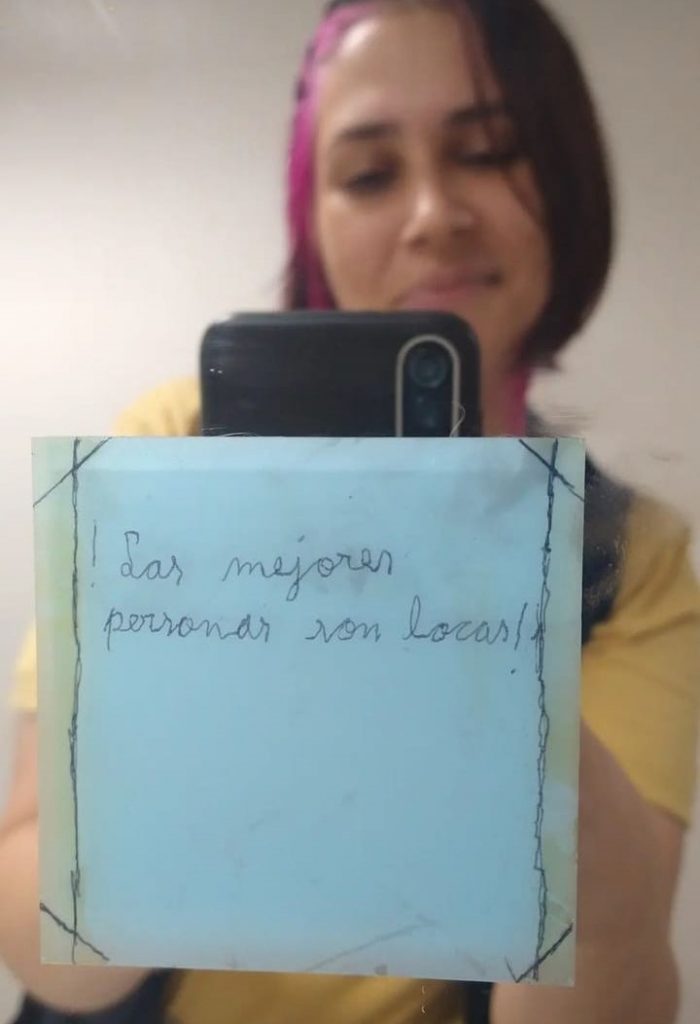 ! Las mejores
personas son locas!